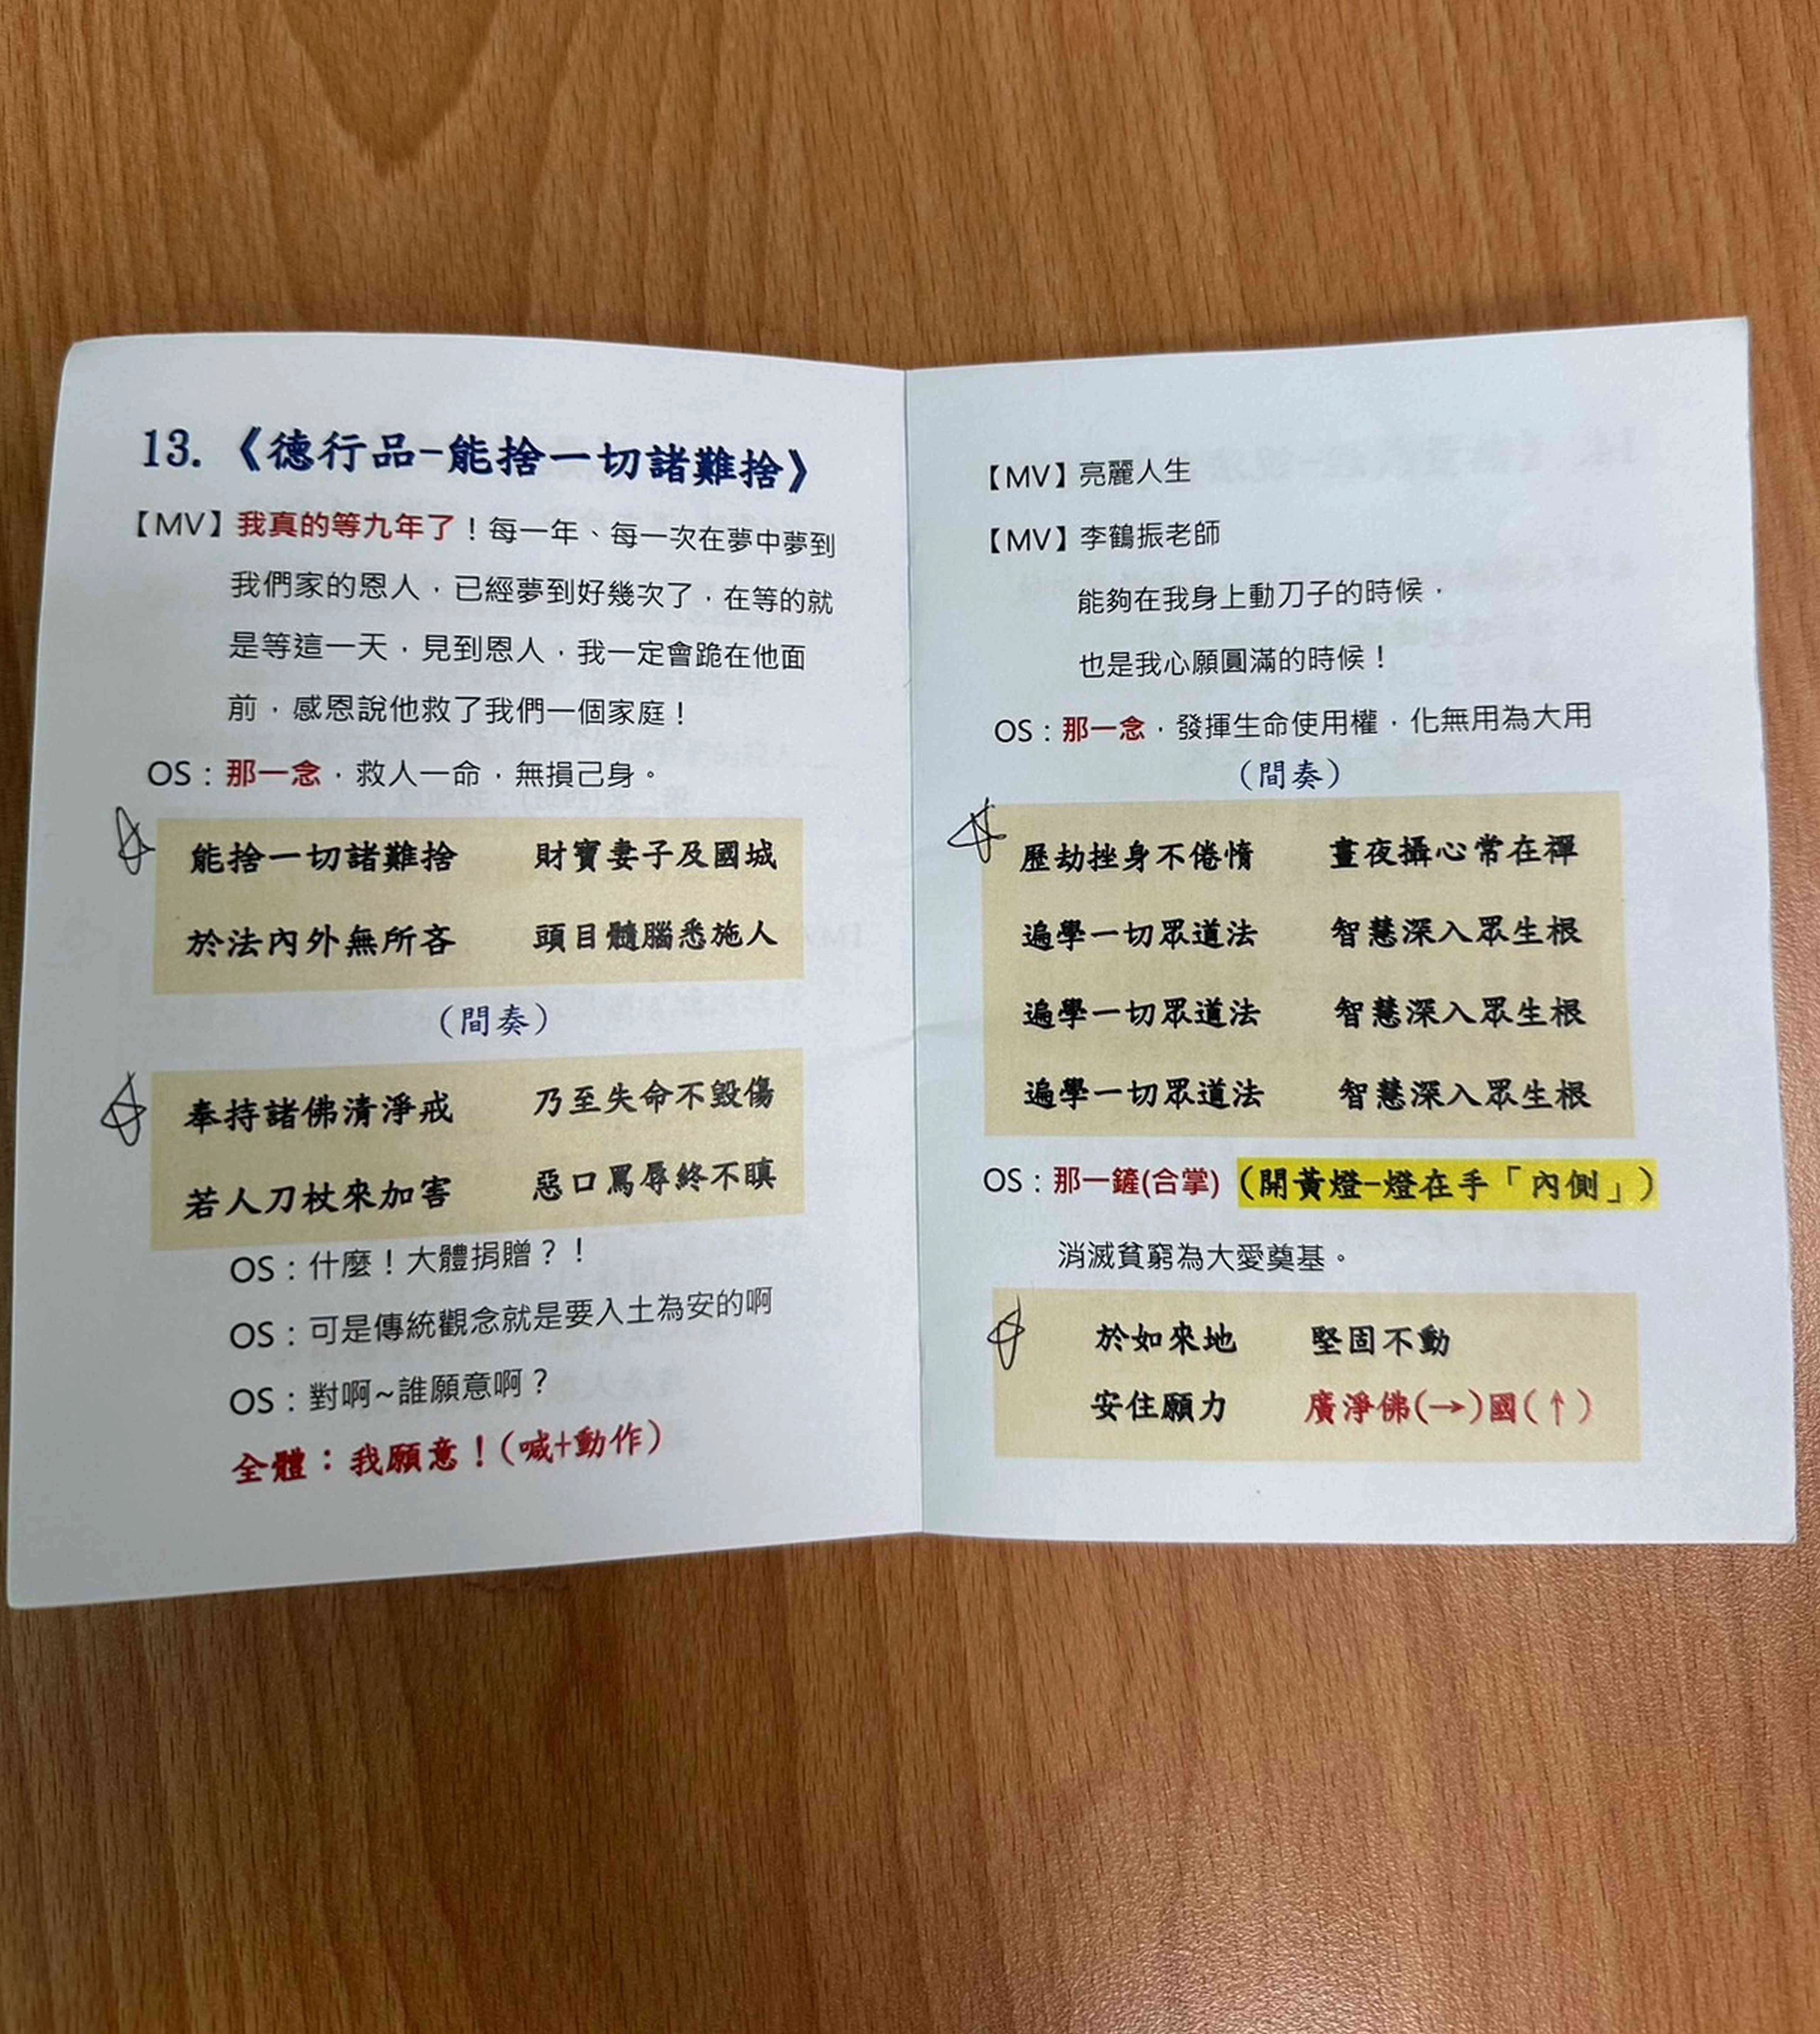 13.《德行品-能捨一切諸難捨》
【MV】我真的等九年了！每一年、每一次在夢中夢到
我們家的恩人，已經夢到好幾次了，在等的就
是等這一天，見到恩人，我一定會跪在他面
前，感恩說他救了我們一個家庭！
OS：那一念，救人一命，無損己身。
能捨一切諸難捨 財寶妻子及國城
於法內外無所吝 頭目髓腦悉施人
（間奏）
奉持諸佛清淨戒 乃至失命不毀傷
若人刀杖來加害 惡口罵辱終不瞋
OS：什麼！大體捐贈？！
OS：可是傳統觀念就是要入土為安的啊
OS：對啊~誰願意啊？
全體：我願意！(喊+動作)
【MV】亮麗人生
【MV】李鶴振老師
能夠在我身上動刀子的時候，
也是我心願圓滿的時候！
OS：那一念，發揮生命使用權，化無用為大用
（間奏）
歷劫挫身不倦惰 晝夜攝心常在禪
遍學一切眾道法 智慧深入眾生根
遍學一切眾道法 智慧深入眾生根
遍學一切眾道法 智慧深入眾生根
OS：那一鏟(合掌)（開黃燈-燈在手「內側」）
消滅貧窮為大愛奠基。
於如來地 堅固不動
安住願力 廣淨佛(→)國(↑)